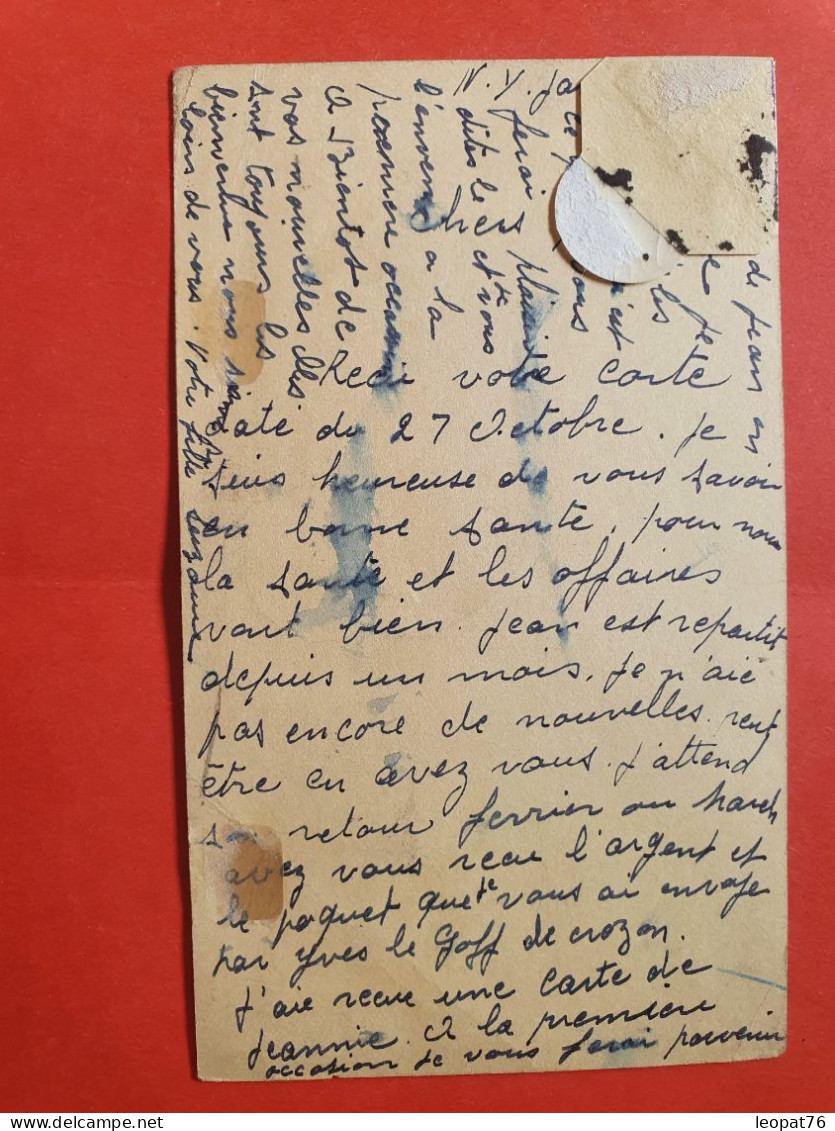 N. Y. Ja
Chers
Recu votre carte
daté du 27 Octobre. Je
suis heureuse de vous savoir
en bonne santé, pour nous
la santé et les affaires
vont bien. Jean est repartit
depuis un mois. Je n'aie
pas encore de nouvelles. peut
être en avez vous. J'attend
son retour fevrier ou March
avez vous recu l'argent et
le paquet que je vous ai envoye
par Yves le Goff de crozon.
J'aie recue une carte de
Jeannie. A la première
occasion je vous ferai parvenir
de Jean en
ferai plaisir
dites le et vous
l'enverrai a la
première occasion
A Bientot de
vos nouvelles elles
sont toujours les
bienvenue nous
loins de vous. Votre fille Suzanne
leopat76